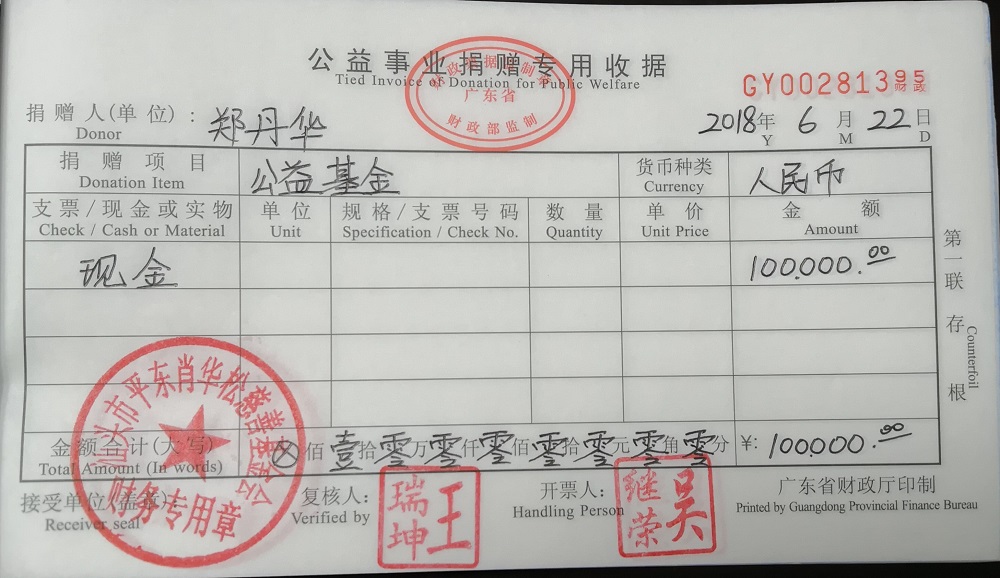 公益事业捐赠专用收据
Tied Invoice of Donation for Public Welfare
广东省
财政部监制
GY00281395
财政
捐赠人(单位):郑丹华
Donor
2018年 6月 22日
Y M D
捐赠项目 公益基金 货币种类 人民币
Donation Item Currency
支票/现金或实物 单位 规格/支票号码 数量 单价 金额
Check / Cash or Material Unit Specification / Check No. Quantity Unit Price Amount
现金 100,000.00
第一联存根
Counterfoil
金额合计(大写) ⊗佰壹拾零万零仟零佰零拾零元零角零分 ¥: 100,000.00
Total Amount (In words)
汕头市平东肖华松慈善基金会
财务专用章
接受单位(盖章) 复核人: 王瑞坤 开票人: 吴继荣 广东省财政厅印制
Receiver seal Verified by Handling Person Printed by Guangdong Provincial Finance Bureau